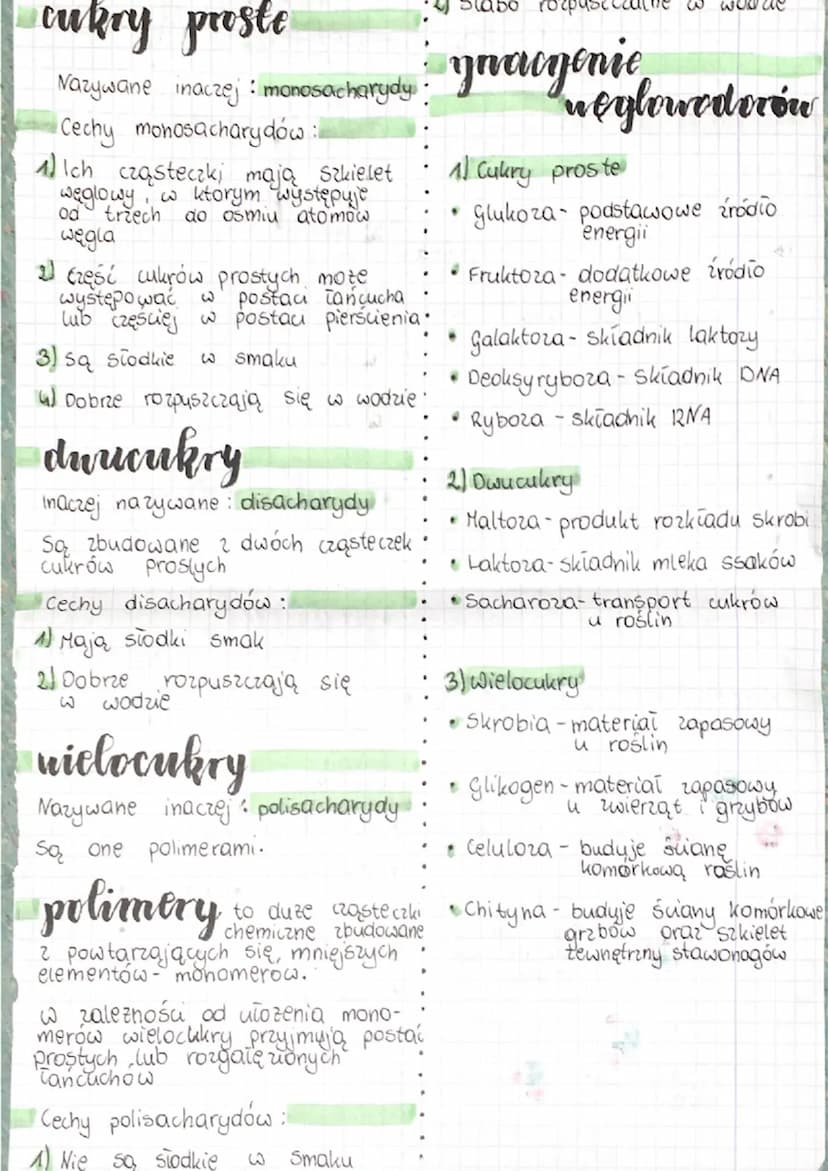 cukry proste
Nazywane inaczej: monosacharydy
Cechy monosacharydów:
1) Ich cząsteczki mają szkielet
węglowy, w ktorym występuje
od trzech do osmiu atomów
węgla
2) Część cukrów prostych może
występować w postaci łańcucha
lub częściej w postaci pierścienia
3) Są słodkie w smaku
4) Dobrze rozpuszczają się w wodzie
dwucukry
inaczej nazywane: disacharydy
Są zbudowane z dwóch cząsteczek
cukrów prostych
Cechy disacharydów:
1) Mają słodki smak
2) Dobrze rozpuszczają się
w wodzie
wielocukry
Nazywane inaczej: polisacharydy
Są one polimerami.
polimery to duże cząsteczki
chemiczne zbudowane
z powtarzających się, mniejszych
elementów - monomerów.
w zależności od ułożenia mono-
merów wielocukry przyjmują postać
prostych lub rozgałęzionych
łańcuchów
Cechy polisacharydów:
1) Nie są słodkie w smaku
2) Słabo rozpuszczalne w wodzie
znaczenie
węglowodorów
1) Cukry proste
• Glukoza - podstawowe źródło
energii
• Fruktoza - dodatkowe źródło
energii
• Galaktoza - składnik laktozy
• Deoksyryboza - składnik DNA
• Ryboza - składnik RNA
2) Dwucukry
• Maltoza - produkt rozkładu skrobi
• Laktoza - składnik mleka ssaków
• Sacharoza - transport cukrów
u roślin
3) Wielocukry
• Skrobia - materiał zapasowy
u roślin
• Glikogen - materiał zapasowy
u zwierząt i grzybów
• Celuloza - buduje ścianę
komórkową roślin
• Chityna - buduje ściany komórkowe
grzbów oraz szkielet
zewnętrzny stawonogów